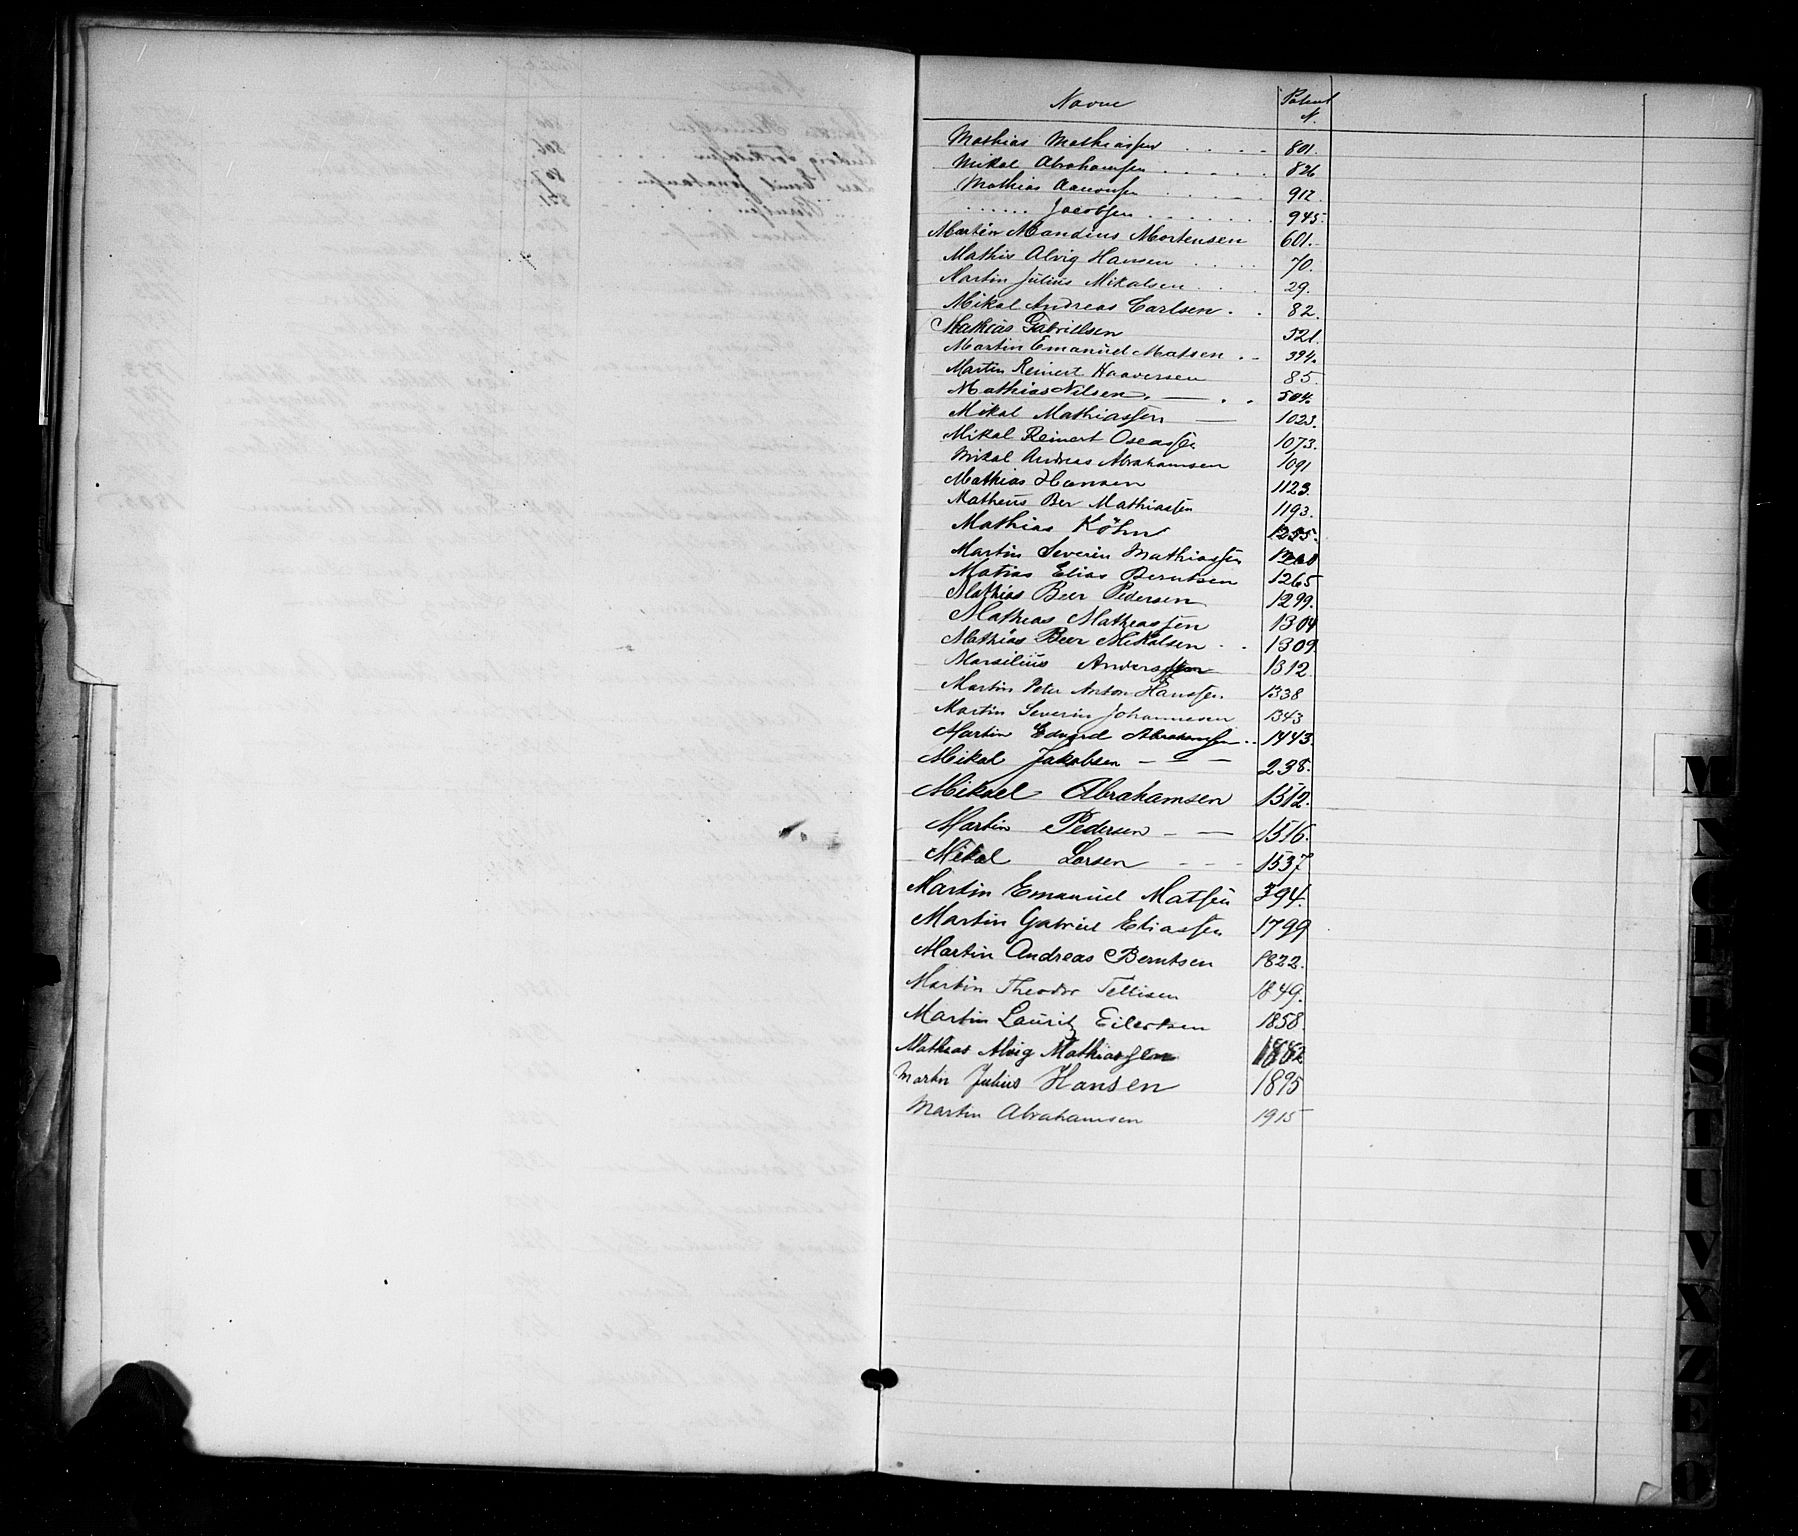 Navne Patent N.
Mathias Mathiassen . . . . 801.
Mikal Abrahamsen . . . . . 826
Mathias Aanonsen . . . . 912
. . . . . . Jacobsen . . . . . . . 945.
Martin Mandius Mortensen 601.
Mathis Alvig Hansen . . . . 70.
Martin Julius Mikalsen . . . 29.
Mikal Andreas Carlsen . . 82.
Mathias Gabrielsen 521.
Martin Emanuel Matsen . . 394.
Martin Reinert Haaversen 85.
Mathias Nilsen . — . . 504.
Mikal Mathiassen — 1023.
Mikal Reinert Oseassen 1073.
Mikal Andreas Abrahamsen 1091
Mathias Hansen 1123.
Matheus Ber Mathiassen 1193.
Mathias Köhn 1255.
Martin Severin Mathiassen
Matias Elias Berntsen 1265
Mathias Beer Pedersen 1299.
Mathias Mathiassen 1304
Mathias Beer Mikalsen . . 1309
Marsilius Anderssen 1312
Martin Peter Anton Hanssen 1338
Martin Severin Johannesen 1343
Martin Edvard Abrahamsen . . 1443.
Mikal Jakobsen — — — 238.
Mikael Abrahamsen 1512.
Martin Pedersen — — 1516.
Mikal Larsen — — — 1537
Martin Emanuel Matsen 394.
Martin Gabriel Eliassen 1799
Martin Andreas Berntsen 1822.
Martin Theodor Tellisen 1849.
Martin Lauritz Eilertsen 1858.
Mathias Alvig Mathiassen 1882
Martin Julius Hansen 1895
Martin Abrahamsen 1915
M
N
S
T
U
V
X
Z